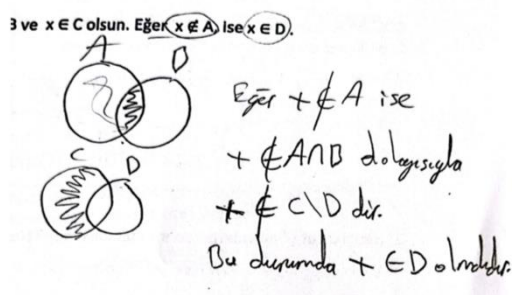 3 ve x ∈ C olsun. Eğer x ∉ A, Ise x ∈ D.
A
D
Eğer x ∉ A ise
x ∉ A∩B dolayısıyla
C
D
x ∉ C\D dir.
Bu durumda x ∈ D olmalıdır.